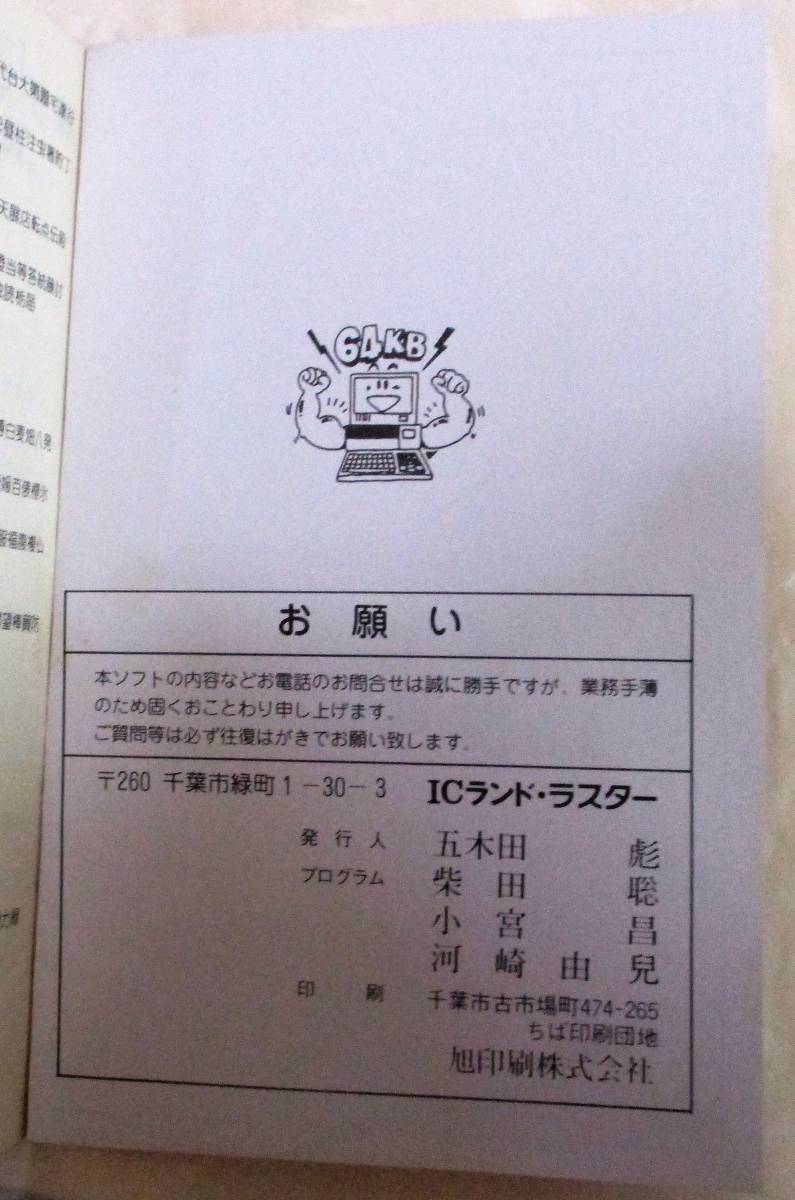 64KB
お願い
本ソフトの内容などお電話のお問合せは誠に勝手ですが、業務手薄
のため固くおことわり申し上げます。
ご質問等は必ず往復はがきでお願い致します。
〒260 千葉市緑町1-30-3 ICランド・ラスター
発行人 五木田 彪
プログラム 柴田 聡
小宮 昌
河崎由兒
印刷 千葉市古市場町474-265
ちば印刷団地
旭印刷株式会社
天展店転点伝
当等答統
読栃
白麦畑八発
百俵標氷
福腹複
望
防